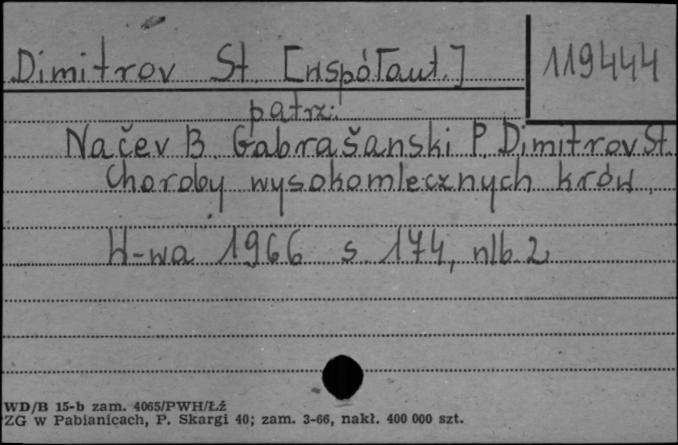 Dimitrov St. [współaut.]
119444
patrz:
Načev B. Gabrašanski P. Dimitrov St.
Choroby wysokomlecznych krów.
W-wa 1966 s. 174, nlb. 2
WD/B 15-b zam. 4065/PWH/Łź
ZG w Pabianicach, P. Skargi 40; zam. 3-66, nakł. 400 000 szt.